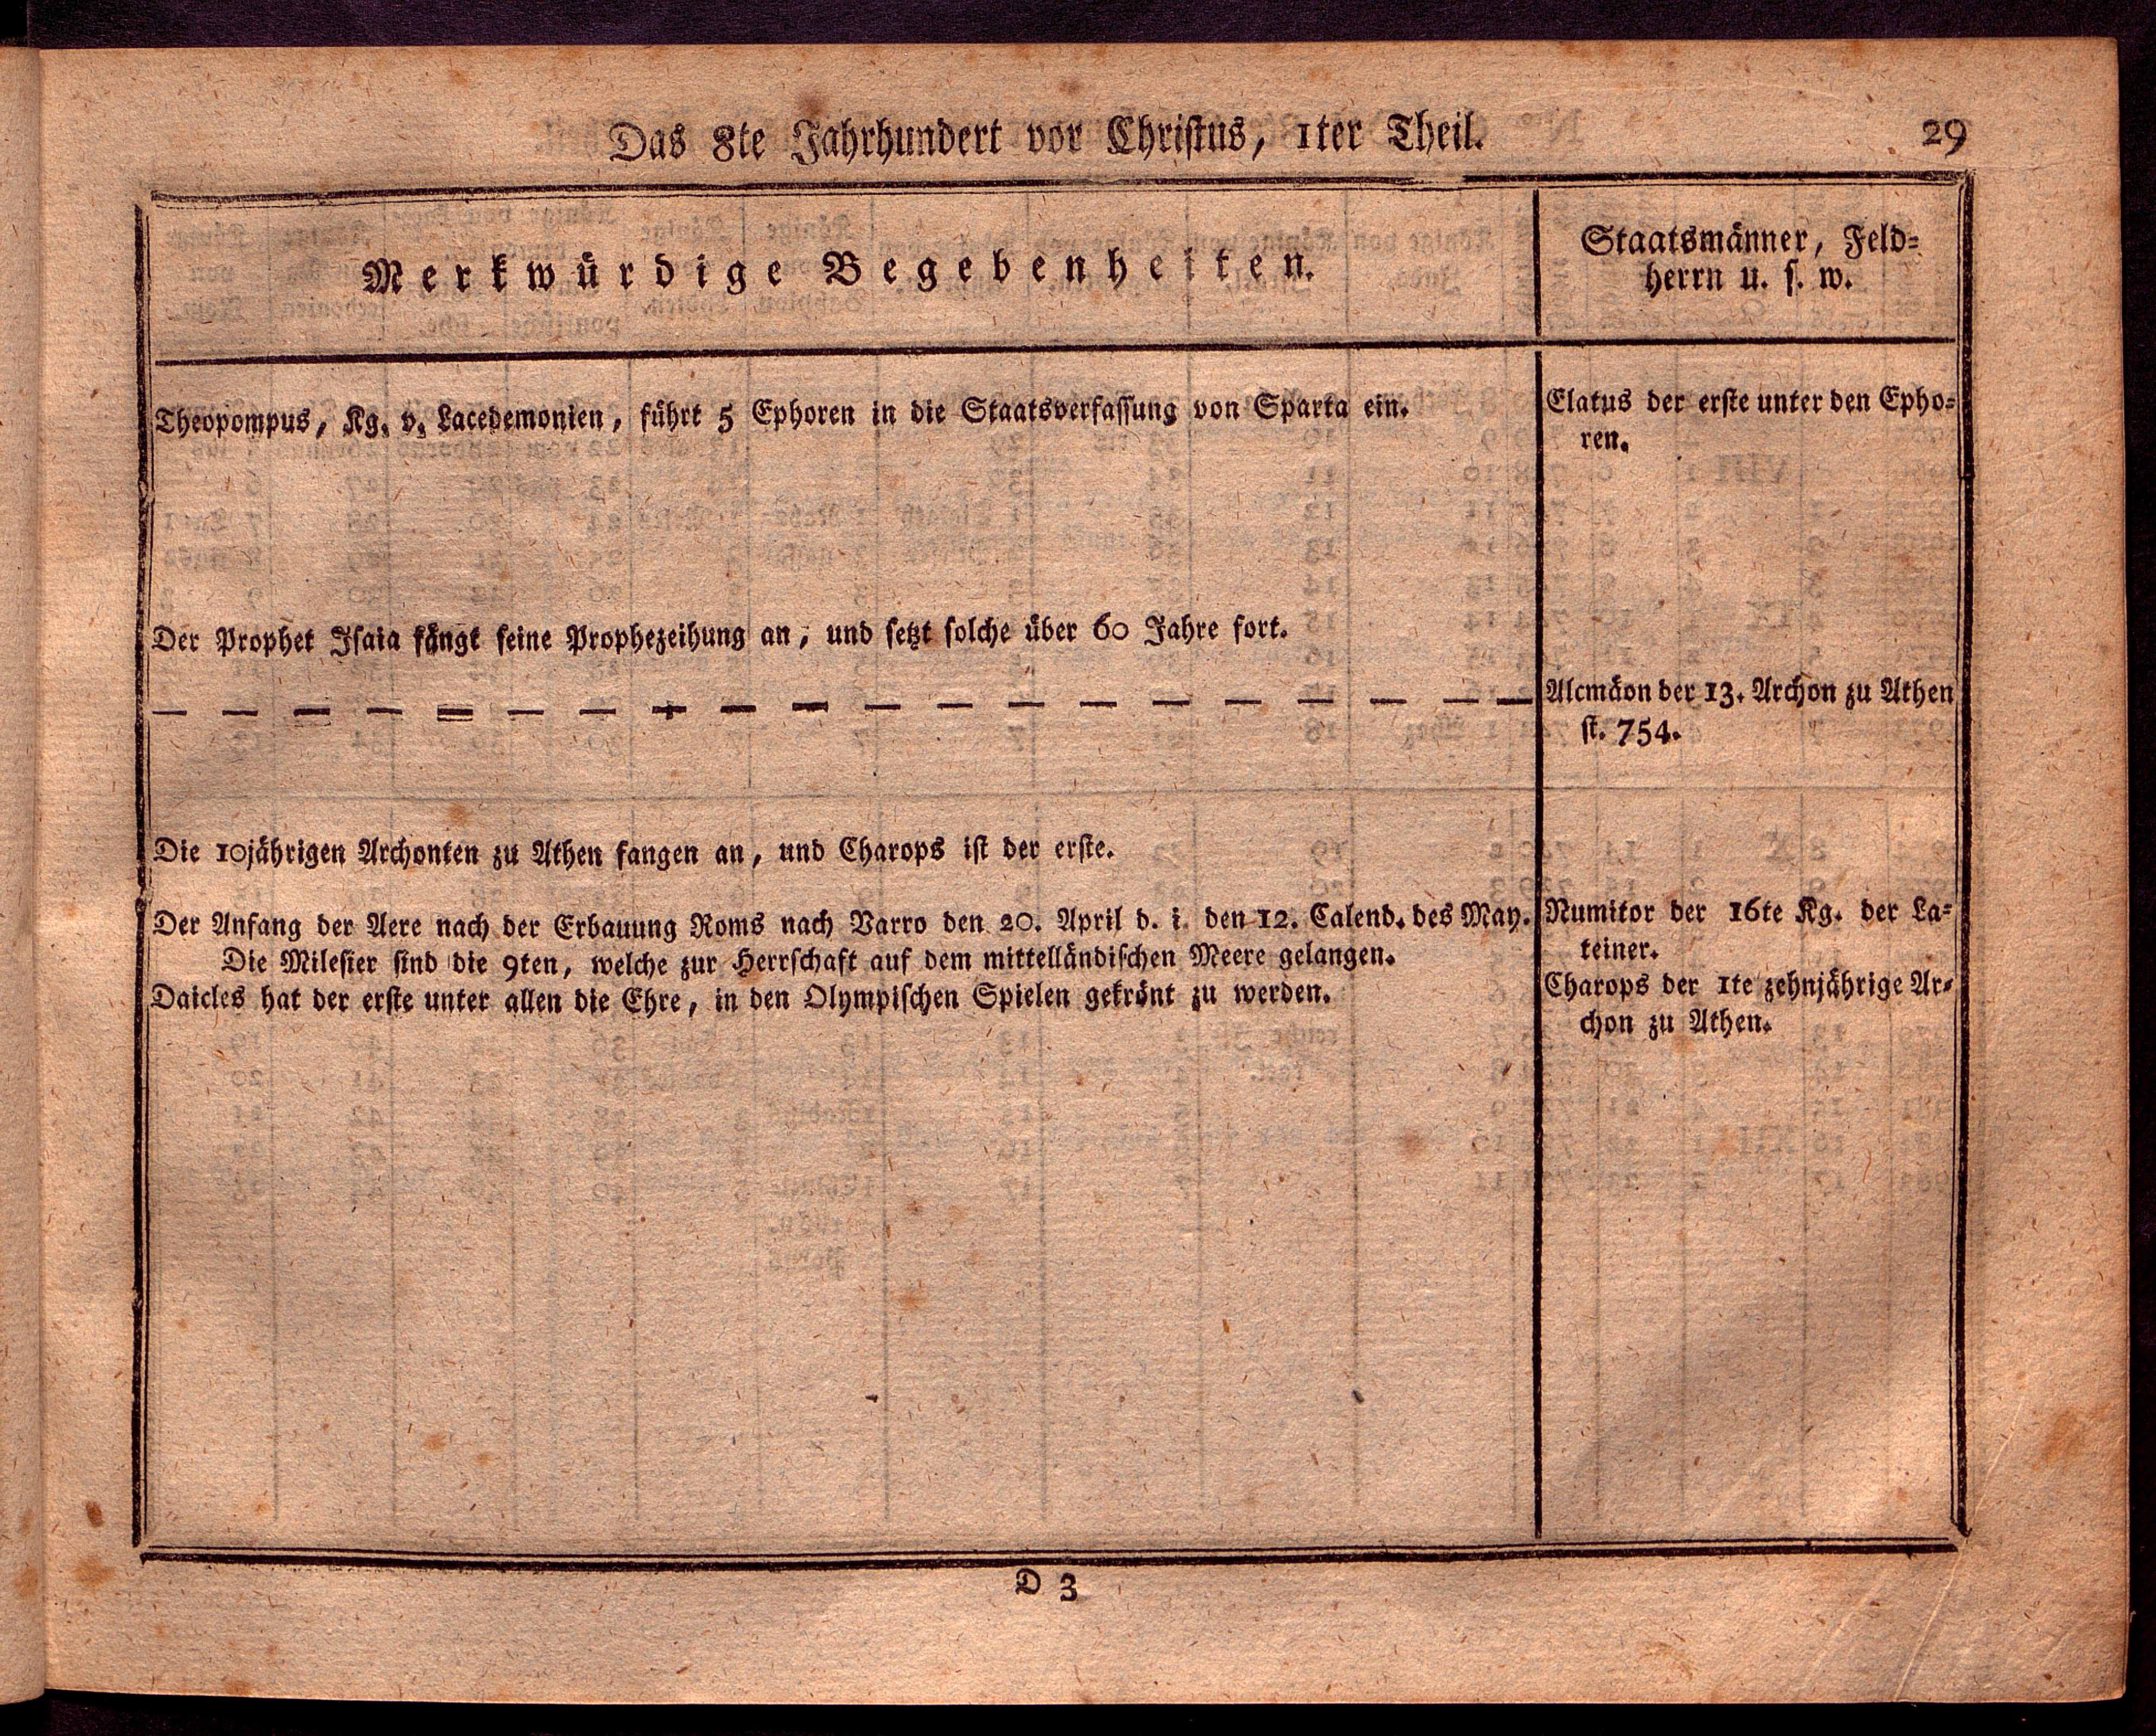 Das 8te Jahrhundert vor Christus, 1ter Theil.
29
Merkwürdige Begebenheiten.
Staatsmänner, Feld=
herrn u. s. w.
Theopompus, Kg. v. Lacedemonien, führt 5 Ephoren in die Staatsverfassung von Sparta ein.
Elatus der erste unter den Epho=
ren.
Der Prophet Isaia fängt seine Prophezeihung an, und setzt solche über 60 Jahre fort.
— — — — — — — — — — — — — — — — — — — —
Alcmäon der 13. Archon zu Athen
st. 754.
Die 10jährigen Archonten zu Athen fangen an, und Charops ist der erste.
Der Anfang der Aere nach der Erbauung Roms nach Varro den 20. April d. i. den 12. Calend. des May.
Die Milesier sind die 9ten, welche zur Herrschaft auf dem mittelländischen Meere gelangen.
Daicles hat der erste unter allen die Ehre, in den Olympischen Spielen gekrönt zu werden.
Numitor der 16te Kg. der La=
teiner.
Charops der 1te zehnjährige Ar=
chon zu Athen.
D 3